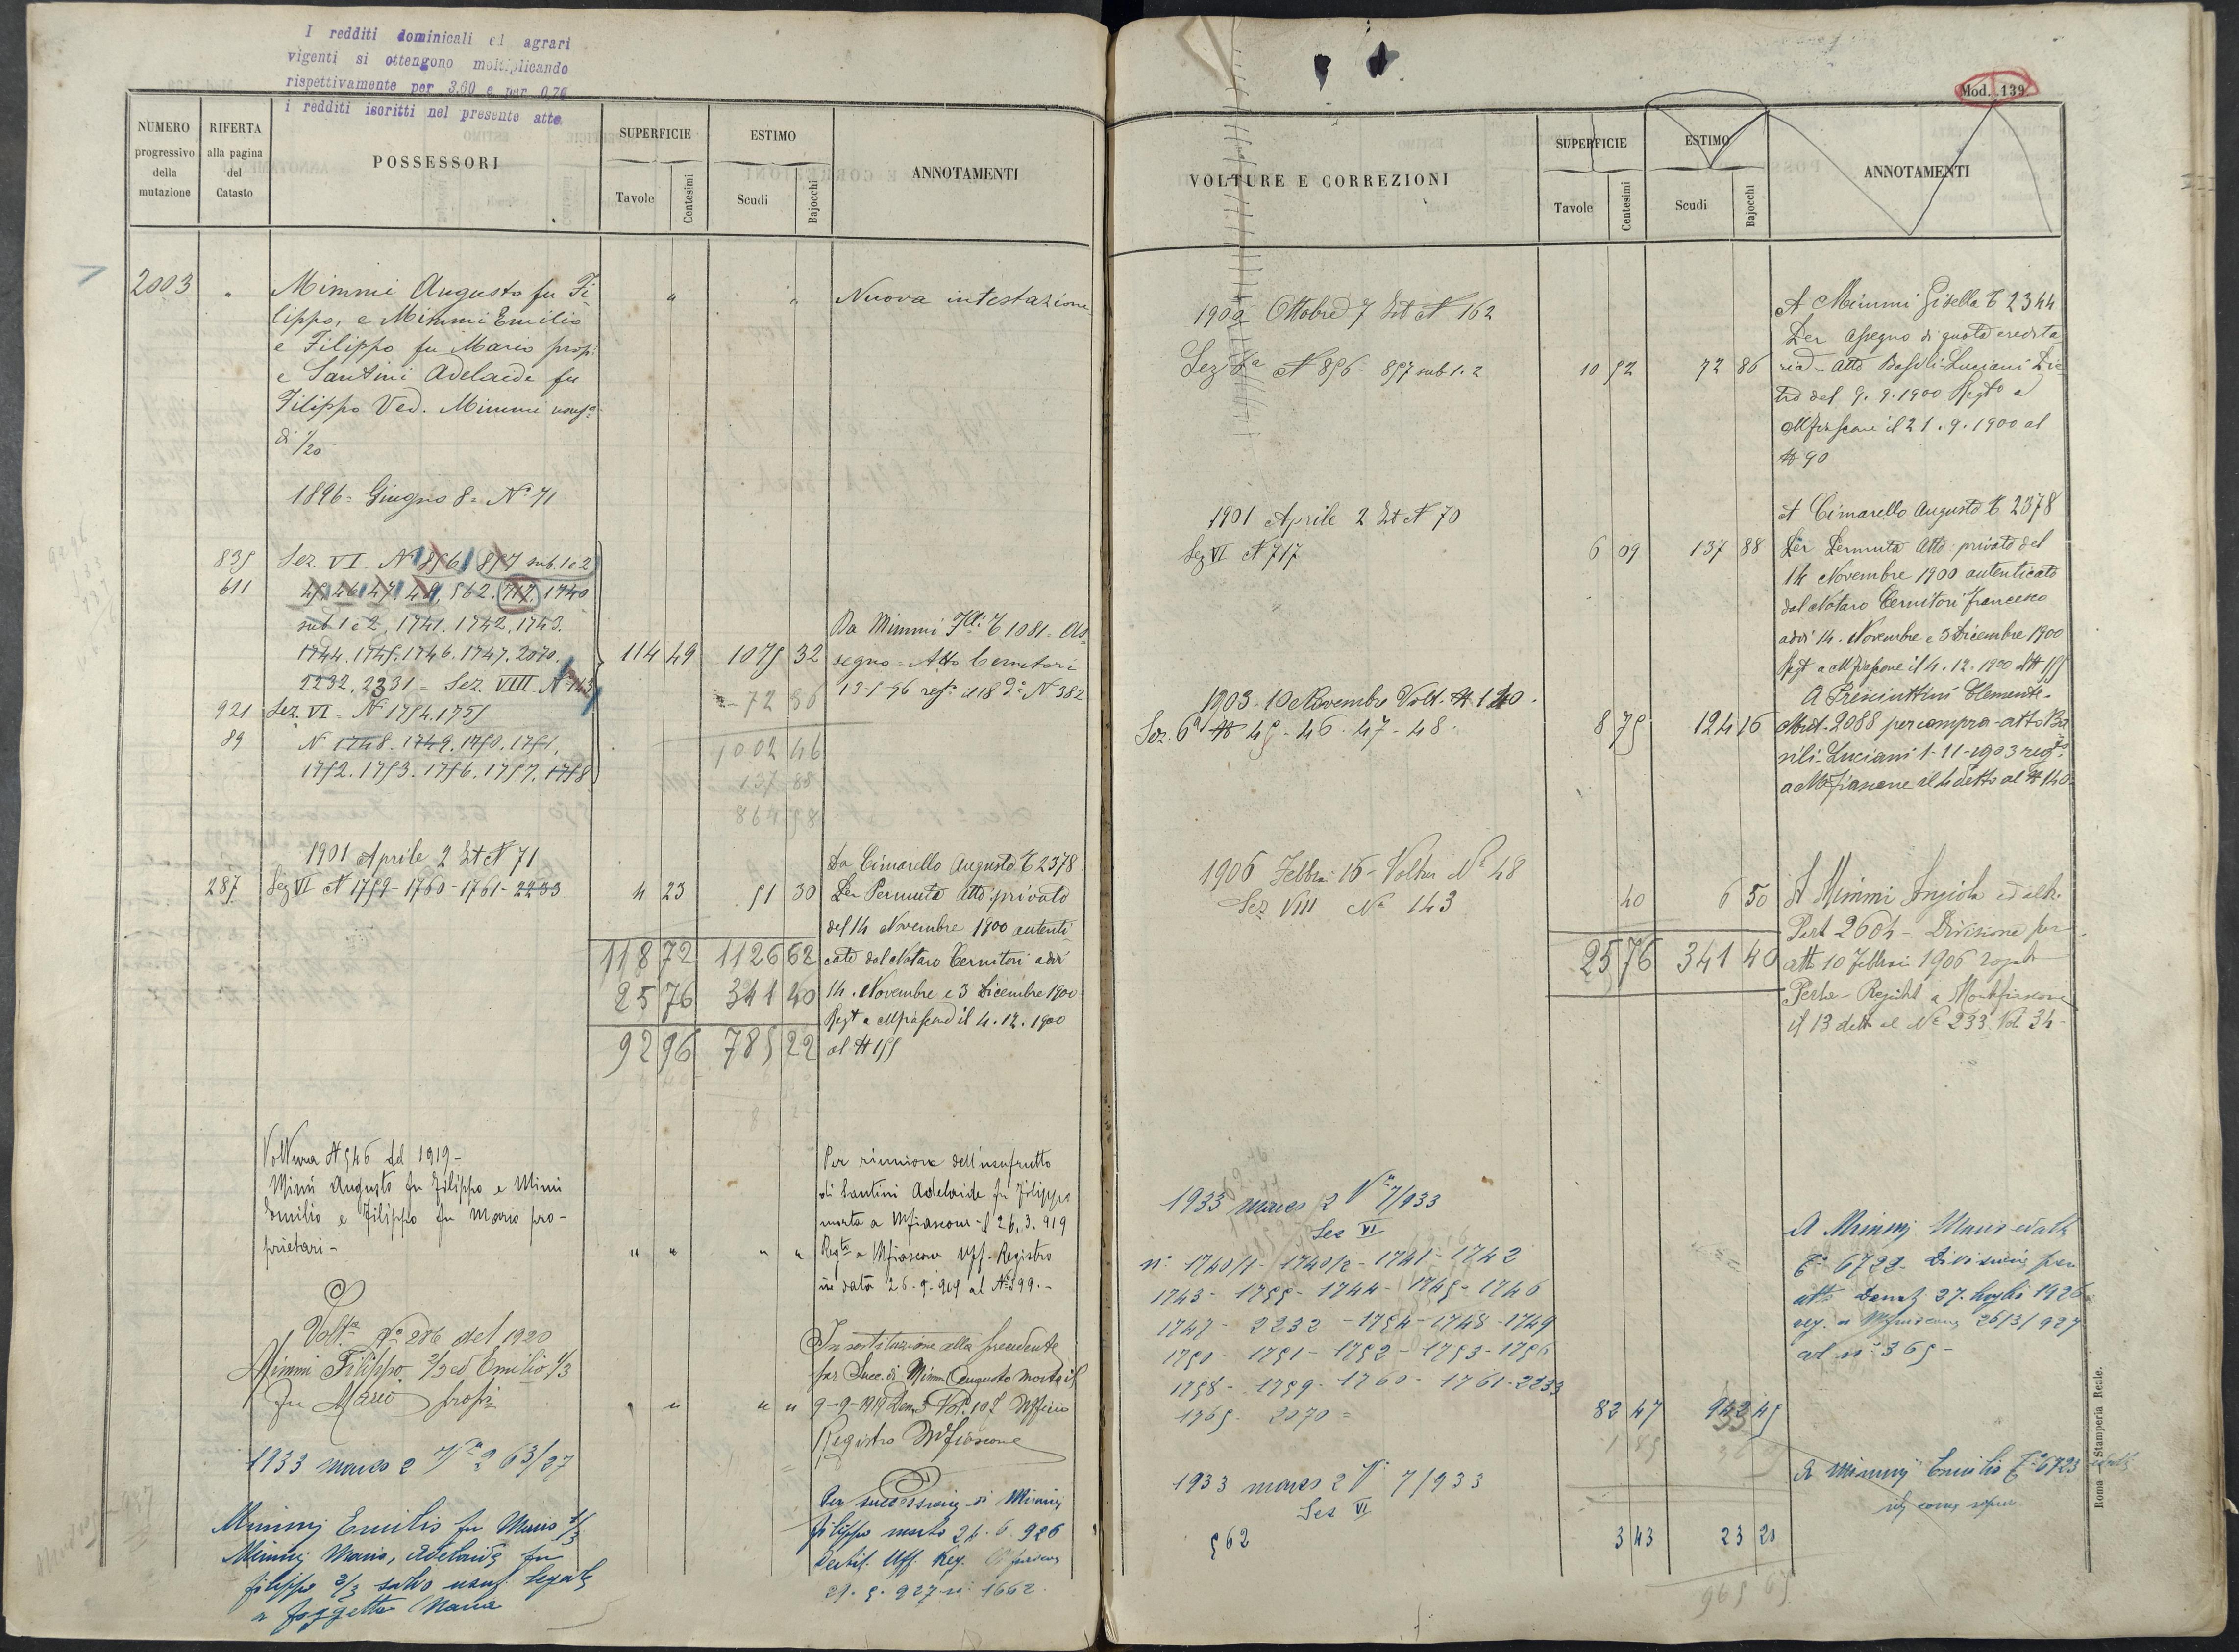 I redditi dominicali ed agrari
vigenti si ottengono moltiplicando
rispettivamente per 3,60 e per 0,76
i redditi iscritti nel presente atto
NUMERO
progressivo
della
mutazione
RIFERTA
alla pagina
del
Catasto
POSSESSORI
SUPERFICIE
Tavole
Centesimi
ESTIMO
Scudi
Bajocchi
ANNOTAMENTI
2003 " Mimmi Augusto fu Fi
lippo, e Mimmi Emilio
e Filippo fu Mario prop:
e Santini Adelaide fu
Filippo Ved. Mimmi
di 1/20
" " Nuova intestazione
1896 = Giugno 8 = N° 71
835 Sez. VI N° 856. 857 sub. 1 e 2
611 45. 46. 47. 48. 562. 717. 1740
sub 1 e 2, 1741. 1742. 1743.
1744. 1745. 1746. 1747. 2070.
2232. 2231 = Sez. VIII. N° 143
921 Sez. VI = N° 1754. 1755
89 N 1748. 1749. 1750. 1751.
1752. 1753. 1756. 1757. 1758
114 49 1075 32
72 86
1002 46
137 88
864 58
Da Mimmi F.lli: T 1081. As=
segno = Atto Cernitori
13-5-96 reg° il 18 d° N° 382
1901 Aprile 2 Est N 71
287 Sez VI N 1759 - 1760 - 1761 - 2233
4 23 51 30
118 72 1126 62
25 76 341 40
92 96 785 22
Da Cimarello Augusto T 2378
Per Permuta Atto privato
del 14 Novembre 1900 autenti
cato dal Notaro Cernitori addì
14. Novembre e 3 Dicembre 1900
Regt a Mfiascone il 4. 12. 1900
al N 155
Voltura N 546 del 1919 -
Mimi Augusto fu Filippo e Mimi
Emilio e Filippo fu Mario pro-
prietari -
" " " "
Per riunione dell'usufrutto
di Santini Adelaide fu Filippo
morta a Mfiascone il 26. 3. 919
Regta a Mfiascone Uff. Registro
in data
Volta N° 276 del 1920
Mimmi Filippo 2/3 ed Emilio 1/3
fu Mario propri
" " " "
In sostituzione alla precedente
per Succ. di Mimmi Augusto morto il
9-9-1919 Den. 5 Vol. 107 Ufficio
Registro Mfiascone
1933 marzo 2 Va 63/27
Mimmj Emilio fu Mario 1/3
Mimmj Mario, Adelaide fu
filippo 2/3 salvo usuf. legale
a foggetta Maria
Per successione di Mimmj
filippo morto 24. 6. 926
Uff. Reg. Mfiascone
29. 5. 927 n° 1662.
Mod. 139
VOLTURE E CORREZIONI
SUPERFICIE
Tavole
Centesimi
ESTIMO
Scudi
Bajocchi
ANNOTAMENTI
1900 Ottobre 7 Est N 162
Sez 6a N 856 - 857 sub 1. 2
10 52 72 86
A Mimmi Gisella T 2344
Per assegno di quota eredita
ria - atto Basili-Luciani Pie
tro del 9. 9. 1900 Regto a
Mfiascone il 21. 9. 1900 al
N 90
1901 Aprile 2 Est N 70
Sez VI N 717
6 09 137 88
A Cimarello Augusto T 2378
Per Permuta Atto privato del
14 Novembre 1900 autenticato
dal Notaro Cernitori Francesco
addì 14. Novembre e 3 Dicembre 1900
Regt a Mfiascone il 4. 12. 1900 al N 155
1903. 10 Novembre Volt. N 140.
Sez. 6a N 45 - 46 - 47 - 48.
8 75 124 16
A Presciuttini Clemente.
Mut. 2088 per compra - atto Ba
sili-Luciani 1-11-1903 regto
a Mfiascone il 4 detto al N 140
1906 Febbr: 16 - Voltura N° 48
Sez VIII N° 143
40 6 50
25 76 341 40
A Mimmi Angiola ed altri
Part 2604 - Divisione per
atto 10 Febbraio 1906 rogato
il 13 detto al N° 233 Vol 34 -
1933 marzo 2 Va 7/933
Sez VI
n° 1740/1 - 1740/2 - 1741 - 1742
1743 - 1755 - 1744 - 1745 - 1746
1747 - 2232 - 1754 - 1748 - 1749
1750 - 1751 - 1752 - 1753 - 1756
1758 - 1759 - 1760 - 1761 - 2233
1765 - 2070 =
82 47
A Mimmj Mario ed altri
T° 6722 Divisione per
atto 27. luglio 1926
reg. a Mfiascone 26/3/927
al n° 365 -
1933 marzo 2 V° 7/933
Sez VI
562
3 43 23 20
965 65
A Mimmj Emilio T° 6723
come sopra
Roma - Stamperia Reale.